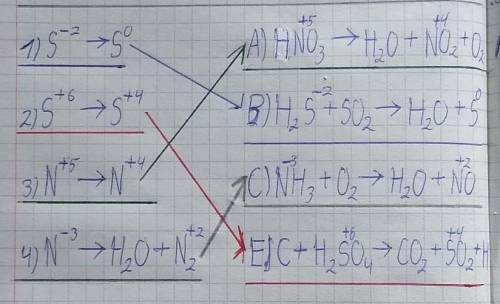 1) S⁻² → S⁰
2) S⁺⁶ → S⁺⁴
3) N⁺⁵ → N⁺⁴
4) N⁻³ → H₂O + N₂⁺²
A) HN⁺⁵O₃ → H₂O + N⁺⁴O₂ + O₂
B) H₂S⁻² + SO₂ → H₂O + S⁰
C) N⁻³H₃ + O₂ → H₂O + N⁺²O
E) C + H₂S⁺⁶O₄ → CO₂ + S⁺⁴O₂ + H